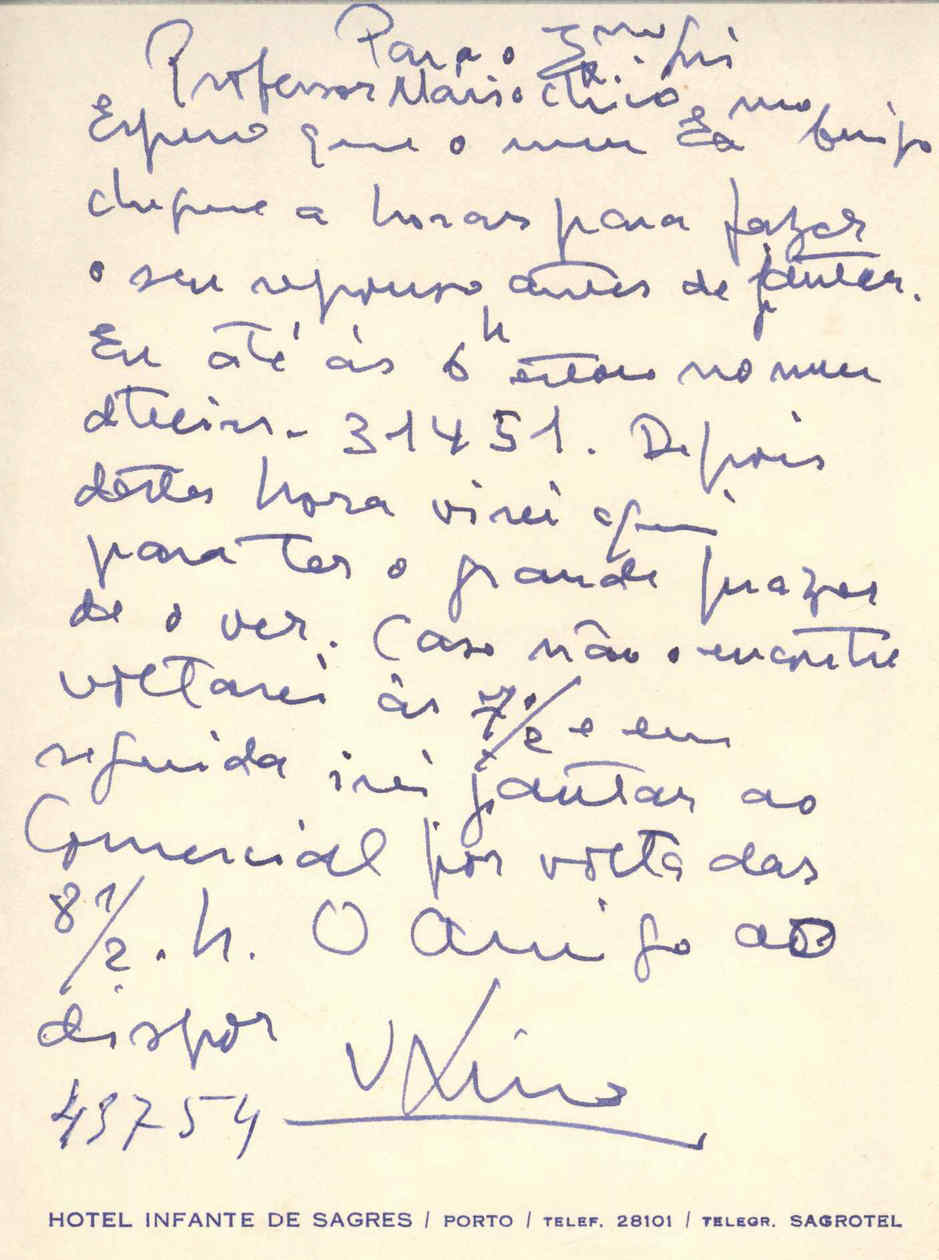 Para o Exmo. Snr.
Professor Mario Chicó
Espero que o meu Exmo Amigo
chegue a horas para fazer
o seu repouso antes de jantar.
Eu até às 6h estou no meu
atelier - 31451. Depois
desta hora virei aqui
para ter o grande prazer
de o ver. Caso não o encontre
voltarei às 7 1/2 e em
seguida irei jantar ao
Comercial por volta das
8 1/2 . h. O Amigo ao
dispor
43754
HOTEL INFANTE DE SAGRES / PORTO / TELEF. 28101 / TELEGR. SAGROTEL